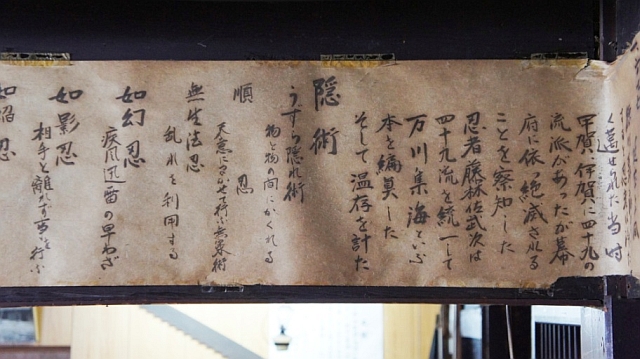 く蓋せられた当時
甲賀、伊賀に四十九の
流派があったが幕
府に依つ絶滅される
ことを察知した
忍者藤林佐武次は
四十九流を統一して
万川集海といふ
本を編奠した
そして温存を計た
隠術
うずら隠れ術
物と物の間にかくれる
順忍
天意にまかせて行ふ無策術
無生法忍
乱れを利用する
如幻忍
疾風迅雷の早わざ
如影忍
相手と離れず事を行ふ
如焔忍